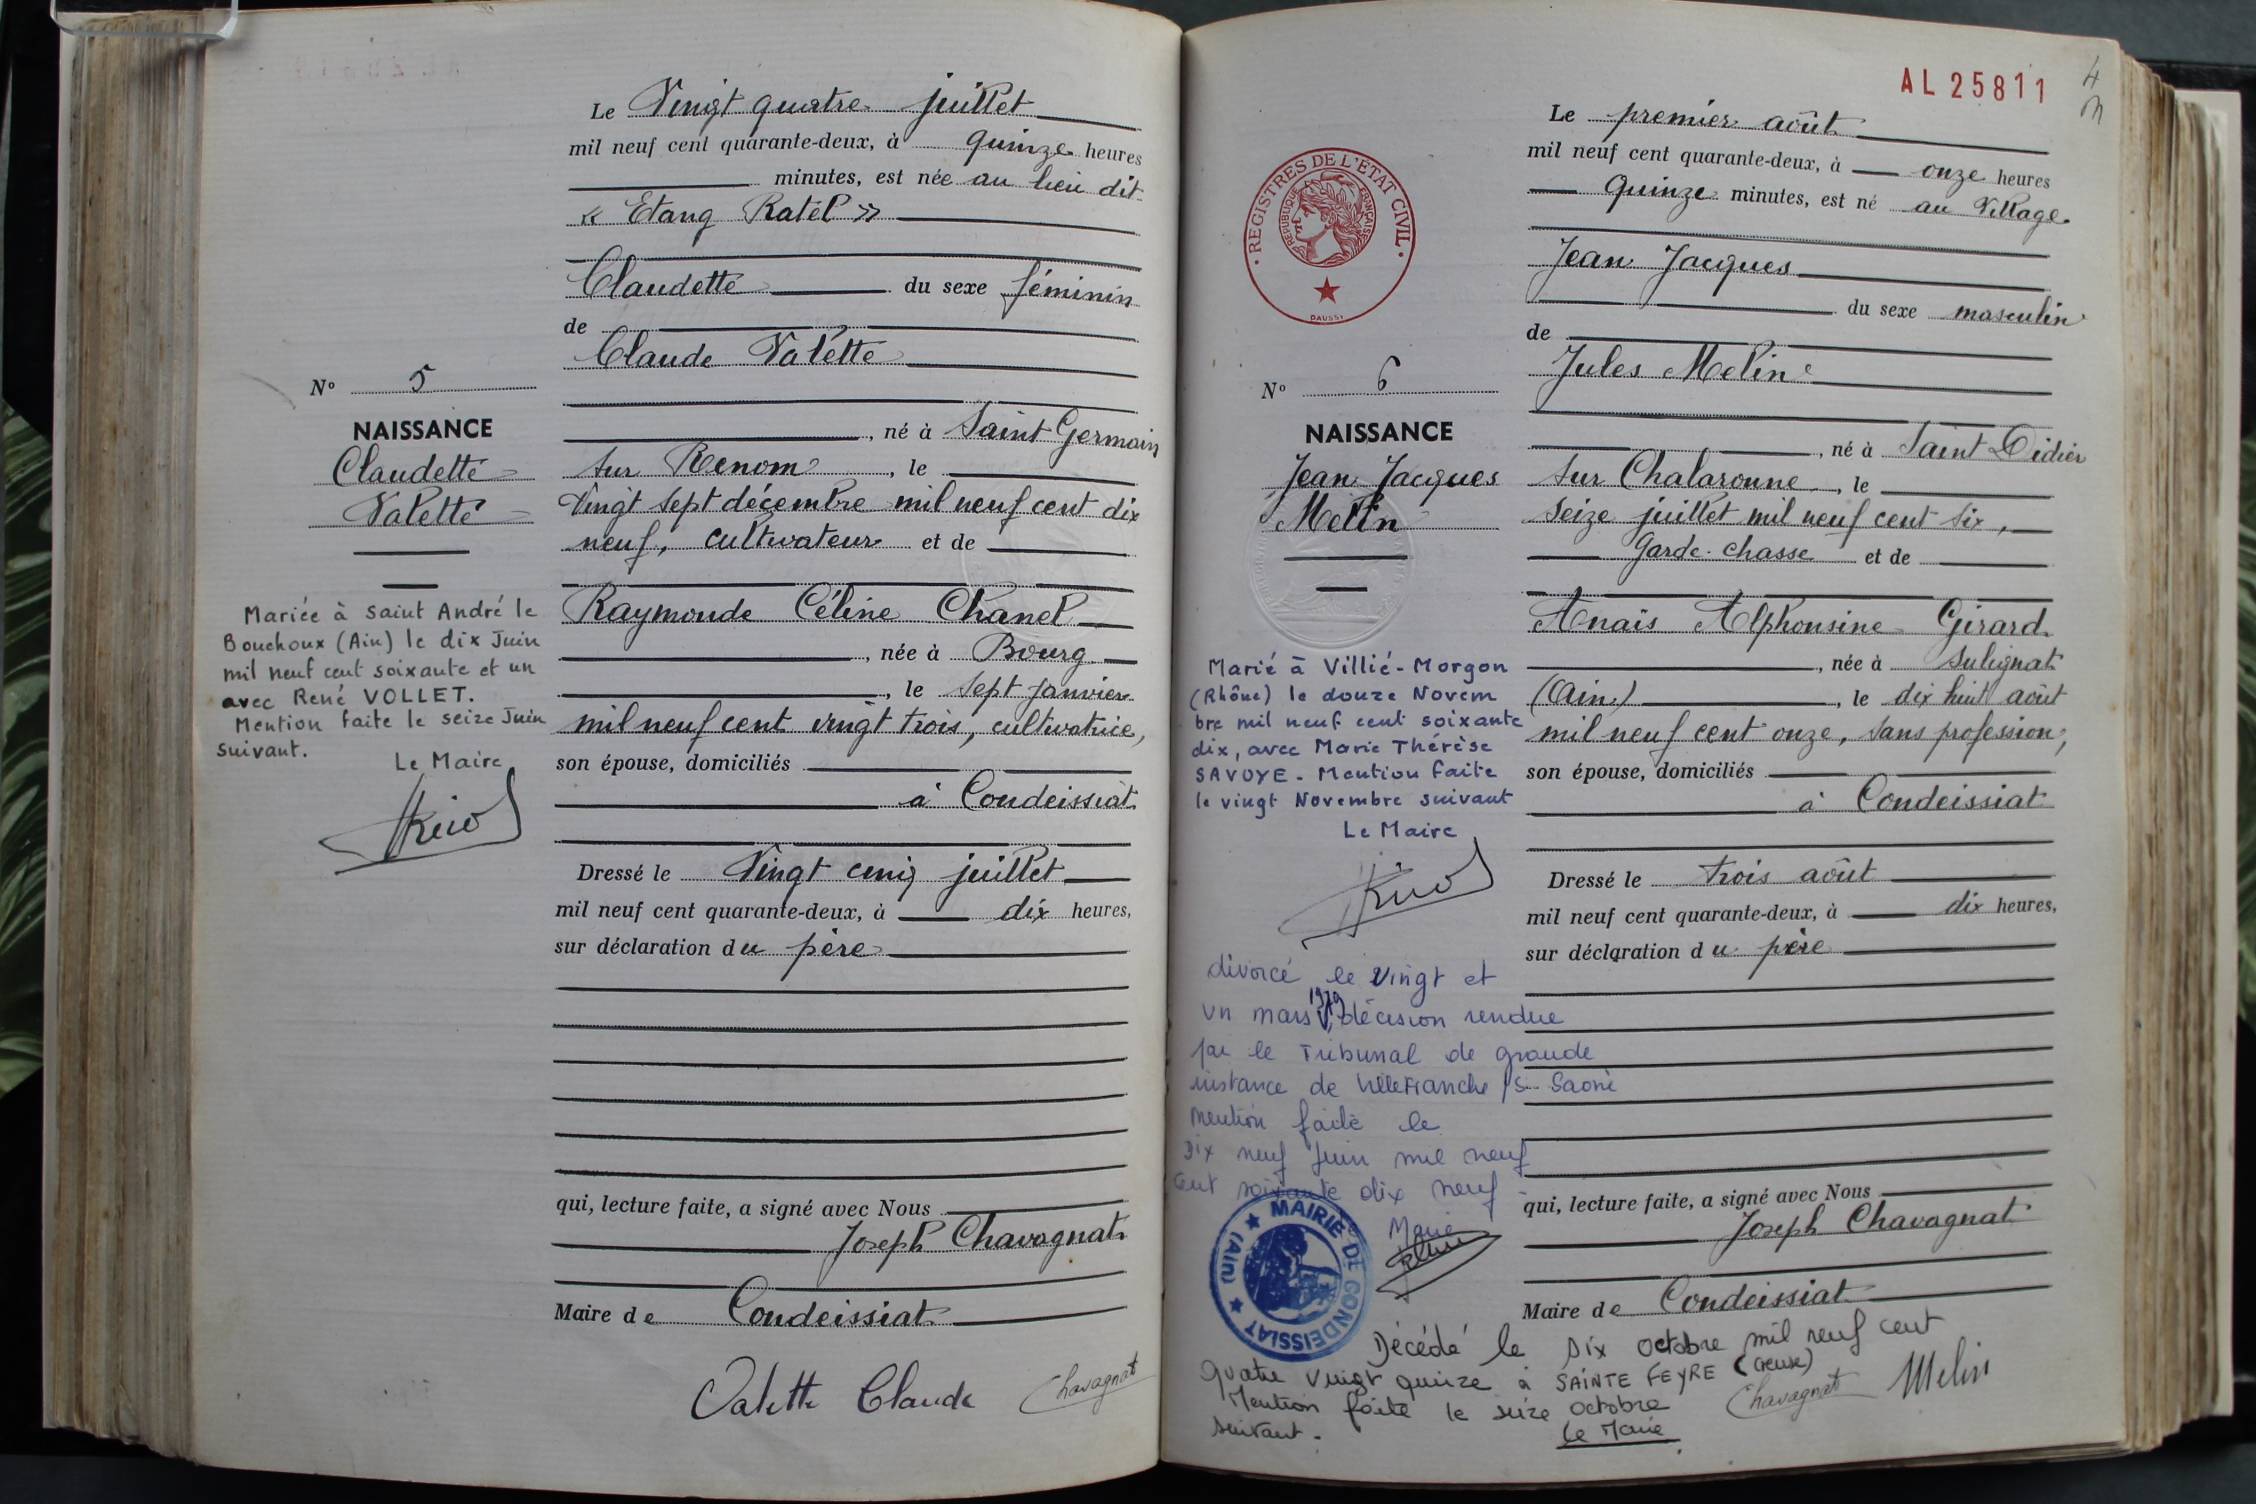 Le Vingt quatre juillet
mil neuf cent quarante-deux, à quinze heures
minutes, est née au lieu dit
« Etang Ratel »
Claudette du sexe féminin
de
Claude Valette
, né à Saint Germain
sur Renom, le
Vingt sept décembre mil neuf cent dix
neuf, cultivateur et de
Raymonde Céline Chanel
, née à Bourg
, le sept janvier
mil neuf cent vingt trois, cultivatrice,
son épouse, domiciliés
à Condeissiat
Dressé le Vingt cinq juillet
mil neuf cent quarante-deux, à dix heures,
sur déclaration du père
qui, lecture faite, a signé avec Nous
Joseph Chavagnat
Maire de Condeissiat
Valette Claude Chavagnat
N° 5
NAISSANCE
Claudette
Valette
Mariée à Saint André le
Bouchoux (Ain) le dix Juin
mil neuf cent soixante et un
avec René VOLLET.
Mention faite le seize Juin
suivant.
Le Maire
AL 25811
4
Le premier août
mil neuf cent quarante-deux, à onze heures
quinze minutes, est né au Village
Jean Jacques
du sexe masculin
de
Jules Melin
, né à Saint Didier
sur Chalaronne, le
seize juillet mil neuf cent six,
Garde-chasse et de
Anaïs Alphonsine Girard
, née à Sulignat
(Ain), le dix huit août
mil neuf cent onze, sans profession,
son épouse, domiciliés
à Condeissiat
Dressé le trois août
mil neuf cent quarante-deux, à dix heures,
sur déclaration du père
qui, lecture faite, a signé avec Nous
Joseph Chavagnat
Maire de Condeissiat
Chavagnat Melin
REGISTRES DE L'ÉTAT CIVIL
RÉPUBLIQUE FRANÇAISE
DAUSSY
N° 6
NAISSANCE
Jean Jacques
Melin
Marié à Villié-Morgon
(Rhône) le douze Novem
bre mil neuf cent soixante
dix, avec Marie Thérèse
SAVOYE. Mention faite
le vingt Novembre suivant
Le Maire
divorcé le vingt et
un mars 1979, décision rendue
par le Tribunal de grande
instance de Villefranche /S. Saone
mention faite le
Dix neuf Juin mil neuf
cent soixante dix neuf
Maire
MAIRIE DE CONDEISSIAT
(AIN)
Décédé le six octobre mil neuf cent
quatre vingt quinze à SAINTE FEYRE (Creuse)
Mention faite le seize octobre
suivant.
Le Maire